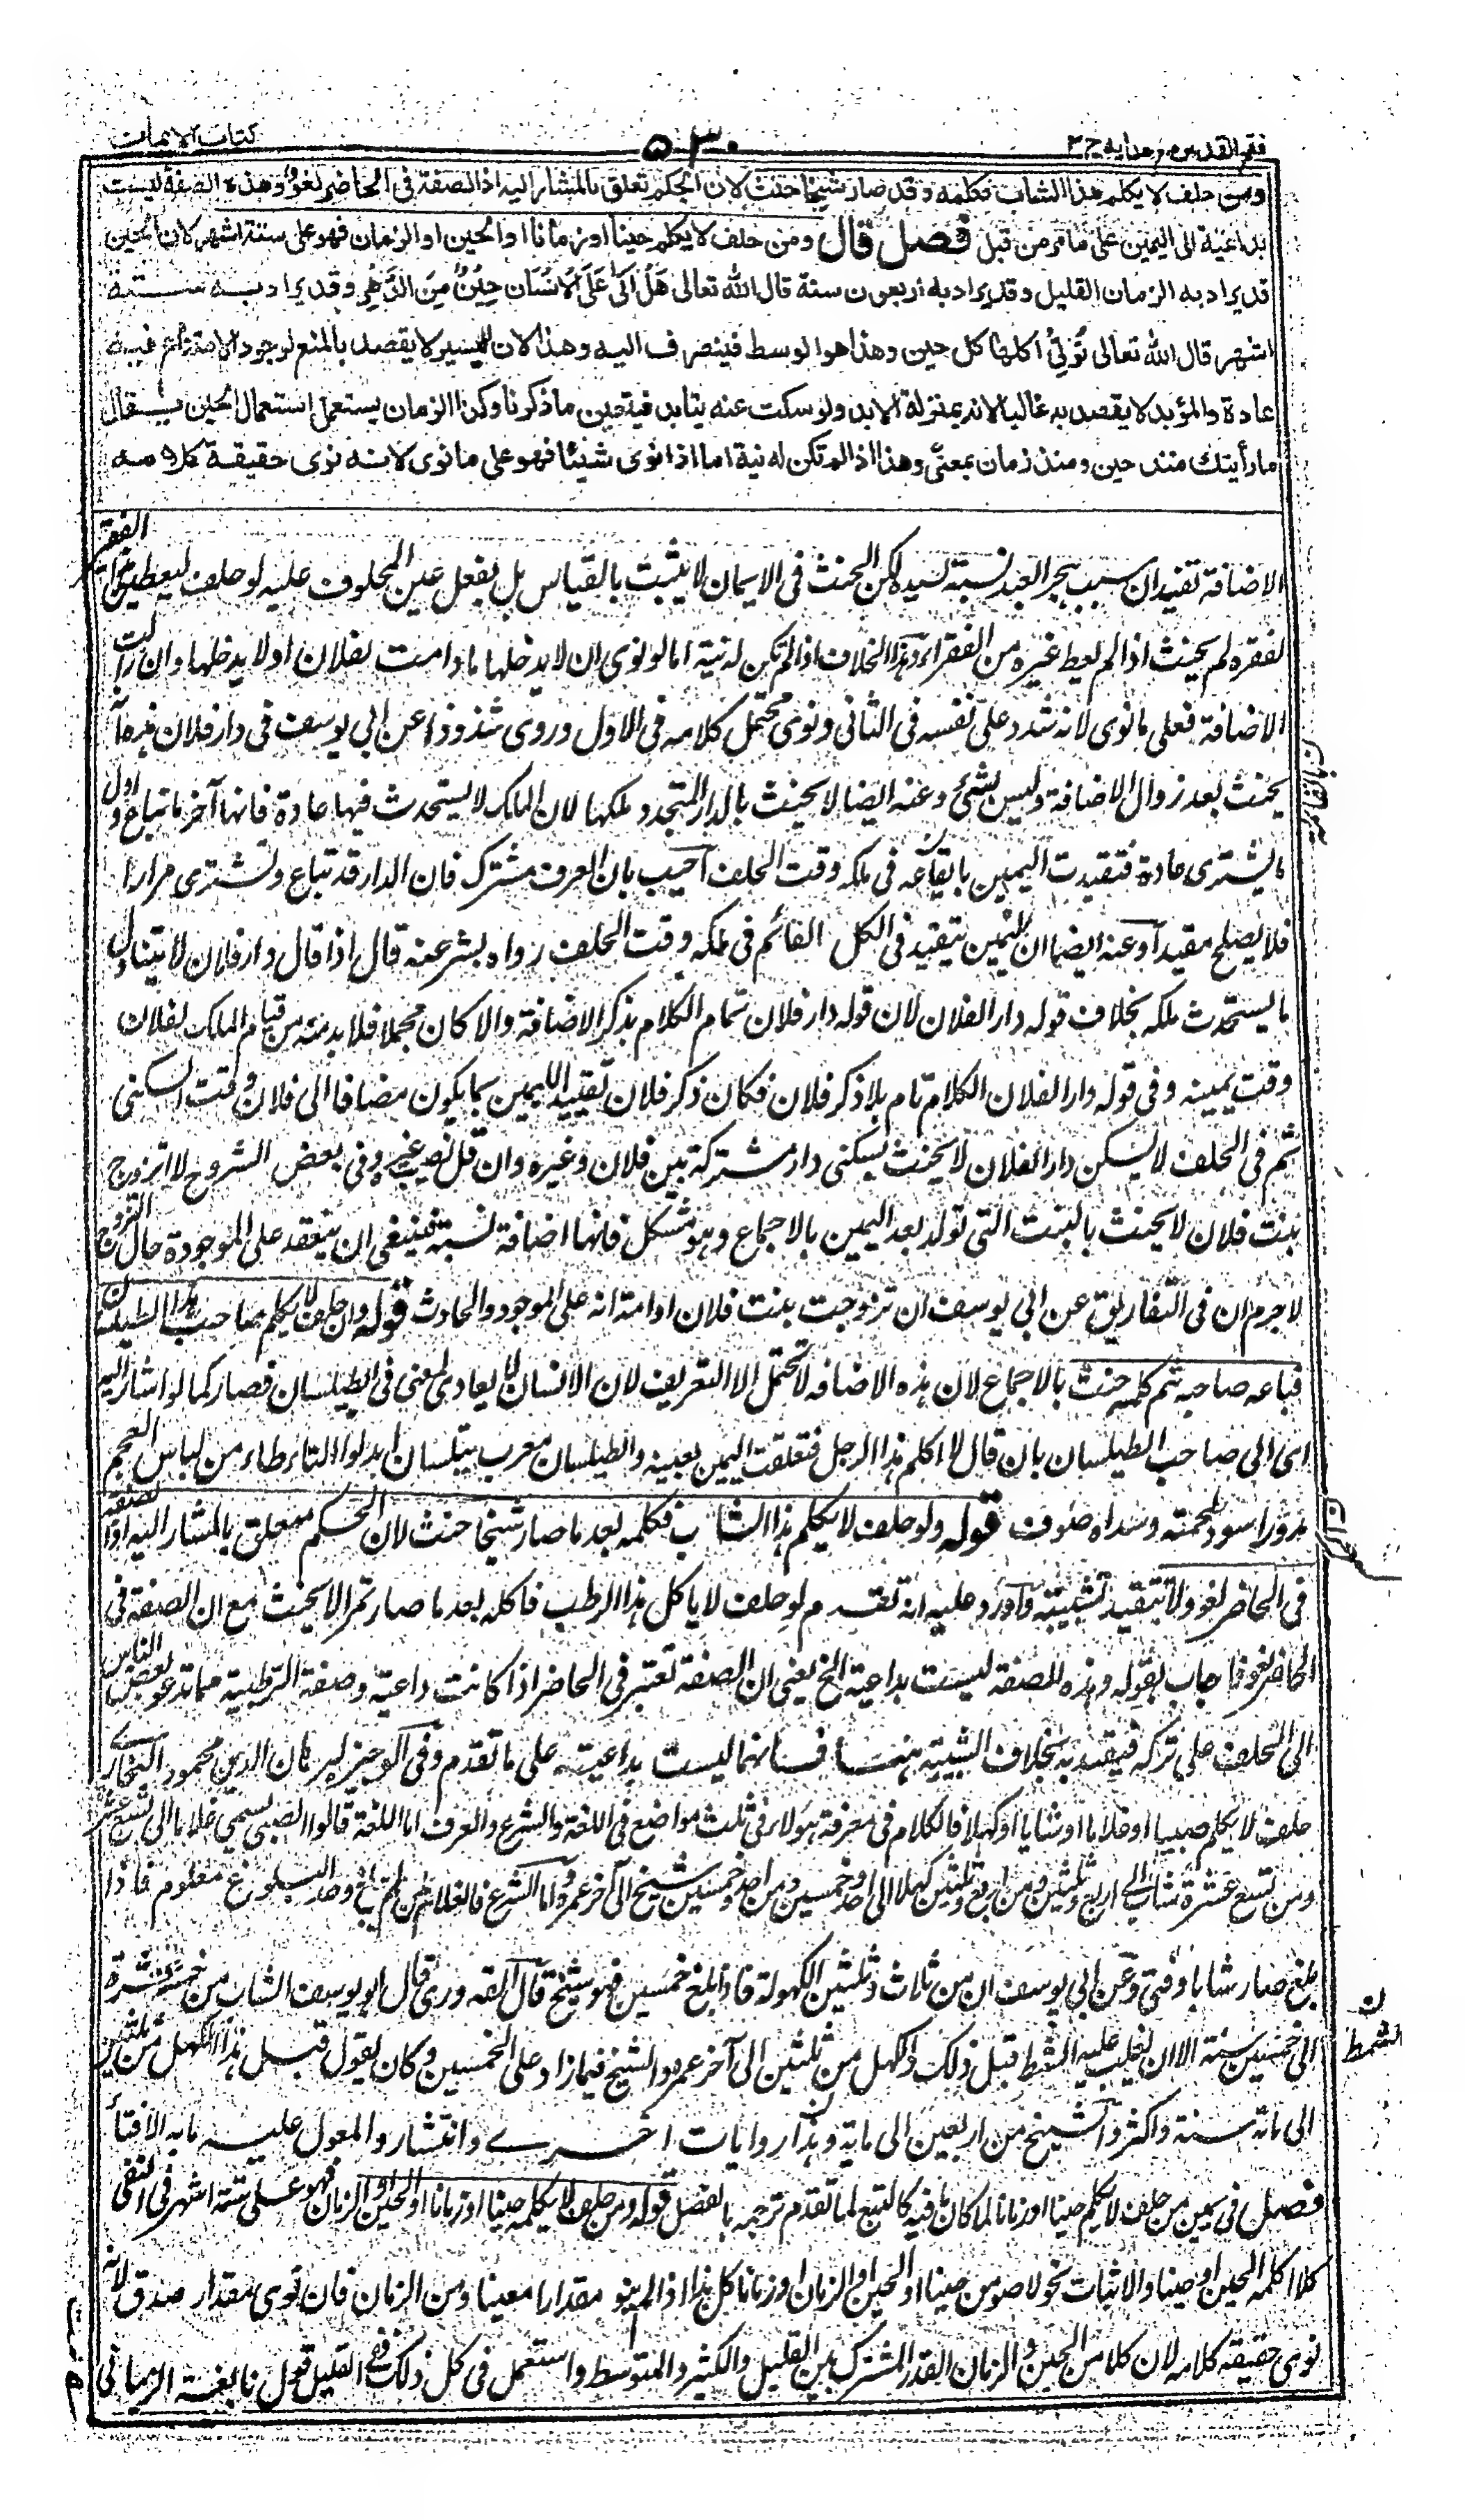 فتح القدير مع هدايه ج ٢
٥٣٠
كتاب الايمان
ومن حلف لا يكلم هذا الشاب فكلمه وقد صار شيخا حنث لان الحكم تعلق بالمشار اليه اذ الصفة في الحاضر لغو وهذه الصفة ليست
بداعية الى اليمين على ما مر من قبل فصل قال ومن حلف لا يكلم حينا او زمانا او الحين او الزمان فهو على ستة اشهر لان الحين
قد يراد به الزمان القليل وقد يراد به اربعون سنة قال الله تعالى هَلْ اَتٰى عَلَى الْاِنْسَانِ حِيْنٌ مِنَ الدَّهْرِ وقد يراد به ستة
اشهر قال الله تعالى تُؤْتِي اُكلها كل حين وهذا هو الوسط فينصرف اليه وهذا لان اليسير لا يقصد بالمنع لوجود الامتناع فيه
عادة والمؤبد لا يقصد به غالبا لانه بمنزلة الابد ولو سكت عنه يتابد فيتعين ما ذكرنا وكذا الزمان يستعمل استعمال الحين يقال
ما رأيتك منذ حين ومنذ زمان بمعنى وهذا اذا لم تكن له نية اما اذا نوى شيئا فهو على ما نوى لانه نوى حقيقة كلامه
الاضافة تفيد ان سبب هجر العبد نسبته لسيده لكن الحنث في الايمان لا يثبت بالقياس بل بفعل عين المحلوف عليه لو حلف ليعطين هذا الفقير
لفقره لم يحنث اذا لم يعط غيره من الفقراء وهذا الخلاف اذا لم تكن له نية اما لو نوى ان لا يدخلها ما دامت لفلان او لا يدخلها وان زالت
الاضافة فعلى ما نوى لانه شدد على نفسه في الثاني ونوى محتمل كلامه في الاول وروى شذوذا عن ابي يوسف في دار فلان هذه انه
يحنث بعد زوال الاضافة وليس بشئ وعنه ايضا لا يحنث بالدار المتجدد ملكها لان الملك لا يستحدث فيها عادة فانها آخر ما تباع واول
ما يشترى عادة فتقيدت اليمين بالقائمة في ملكه وقت الحلف اجيب بان العرف مشترك فان الدار قد تباع وتشترى مرارا
فلا يصلح مقيدا وعنه ايضا ان اليمين يتقيد في الكل القائم في ملكه وقت الحلف رواه بشر عنه قال اذا قال دار فلان لا يتناول
ما يستحدث ملكه بخلاف قوله دارا لفلان لان قوله دار فلان تمام الكلام بذكر الاضافة والا كان مجملا فلا بد منه من قيام الملك لفلان
وقت يمينه وفي قوله دارا لفلان الكلام تام بلا ذكر فلان فكان ذكر فلان تقييد اليمين بما يكون مضافا الى فلان وقت السكنى
ثم في الحلف لا يسكن دارا لفلان لا يحنث بسكنى دار مشتركة بين فلان وغيره وان قل نصيب غيره وفي بعض الشروح لا اتزوج
بنت فلان لا يحنث بالبنت التي تولد بعد اليمين بالاجماع وهو مشكل فانها اضافة نسبة فينبغي ان ينعقد على الموجودة حال التزوج
لا جرم ان في التفاريق عن ابي يوسف ان تزوجت بنت فلان او امته انه على الموجود والحادث قوله وان حلف لا يكلم صاحب هذا الطيلسان
فباعه صاحبه ثم كلمه حنث بالاجماع لان هذه الاضافة لا تحتمل الا التعريف لان الانسان لا يعادى لمعنى في الطيلسان فصار كما لو اشار اليه
اى الى صاحب الطيلسان بان قال لا اكلم هذا الرجل فتعلقت اليمين بعينه والطيلسان معرب تيلسان ابدلوا التاء طاء من لباس العجم
مدور اسود لحمته وسداه صوف قوله ولو حلف لا يكلم هذا الشاب فكلمه بعد ما صار شيخا حنث لان الحكم متعلق بالمشار اليه اذ الصفة
في الحاضر لغو ولا تتقيد بشبيبته واورد عليه انه تقدم لو حلف لا ياكل هذا الرطب فاكله بعد ما صار تمرا لا يحنث مع ان الصفة في
الحاضر لغو فاجاب بقوله وهذه الصفة ليست بداعية الخ يعني ان الصفة تعتبر في الحاضر اذا كانت داعية وصفة الرطبية مما تدعو بعض الناس
الى الحلف على تركه فيقيد به بخلاف الشبيبة هنا فانها ليست بداعية على ما تقدم وفي الوجيز لبرهان الدين محمود البخاري
حلف لا يكلم صبيا او غلاما او شابا او كهلا فالكلام في معرفة هؤلاء في ثلث مواضع في اللغة والشرع والعرف اما اللغة قالوا الصبي يسمى غلاما الى تسع عشرة
ومن تسع عشرة شاب الى اربع وثلثين ومن اربع وثلثين كهلا الى احد وخمسين ومن احد وخمسين شيخ الى آخر عمره واما الشرع فالغلام من لم يبلغ وحد البلوغ معلوم فاذا
بلغ صار شابا وفتى وعن ابي يوسف ان من ثلاث وثلثين الكهولة فاذا بلغ خمسين فهو شيخ قال القدوري قال ابو يوسف الشاب من خمس عشرة
الى خمسين سنة الا ان يغلب عليه الشمط قبل ذلك والكهل من ثلثين الى آخر عمره والشيخ فيما زاد على الخمسين وكان يقول قبل هذا الكهل من ثلثين
الى مائة سنة واكثر والشيخ من اربعين الى ماية وهذا روايات اخرى وانتشار والمعول عليه ما به الافتاء
فصل في يمين من حلف لا يكلم حينا او زمانا لما كان ما فيه كالتبع لما تقدم ترجمه بالفصل قوله ومن حلف لا يكلمه حينا او زمانا او الحين او الزمان فهو على ستة اشهر في النفي
كلا اكلمه الحين او حينا والاثبات نحو لاصومن حينا او الحين او الزمان او زمانا كل هذا اذا لم ينو مقدارا معينا من الزمان فان نوى مقدار صدق لانه
نوى حقيقة كلامه لان كلا من الحين والزمان القدر المشترك بين القليل والكثير والمتوسط واستعمل في كل ذلك ففي القليل قول نابغة الذبياني
الشمط